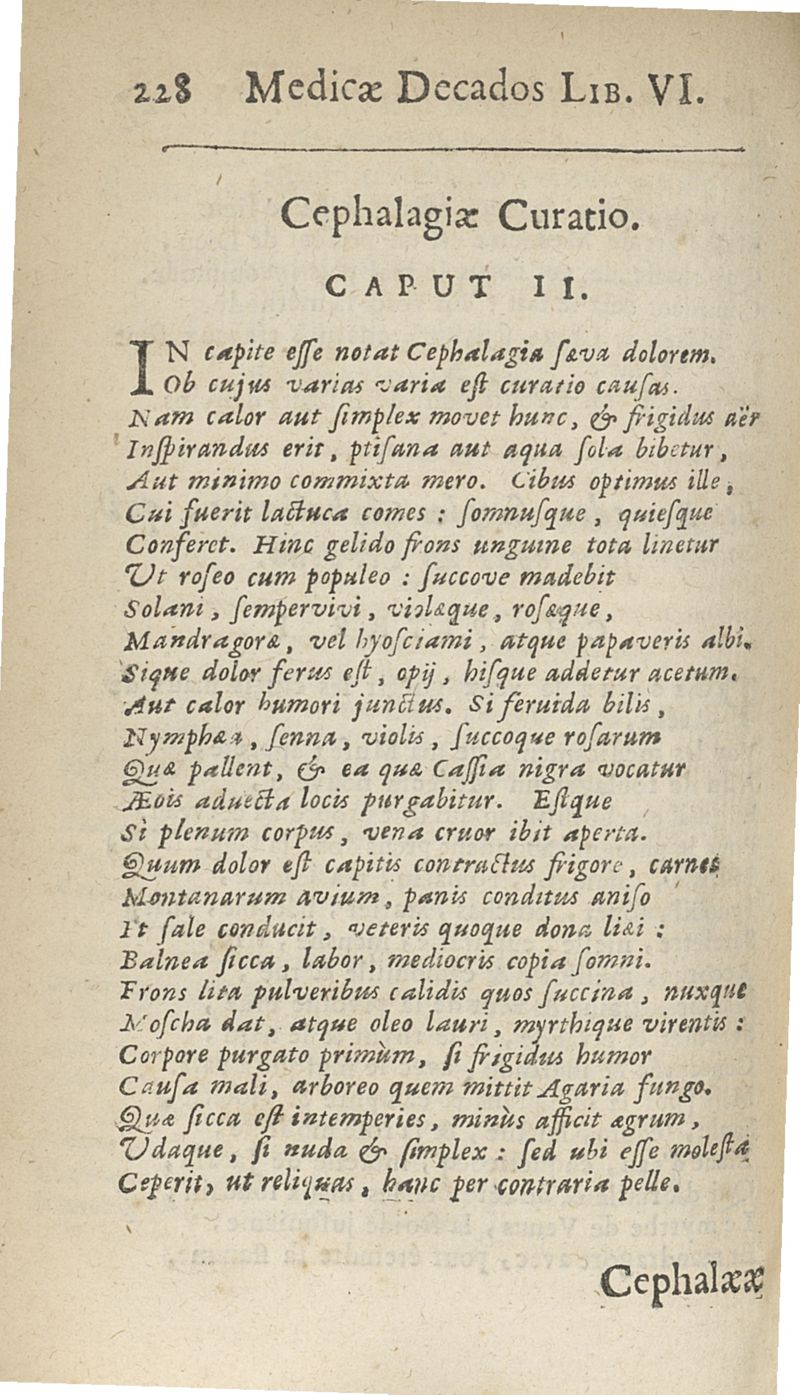 228 Medicæ Decados LIB. VI.
Cephalagiæ Curatio.
CAPUT II.
IN capite eſſe notat Cephalagia ſæva dolorem.
Ob cujus varias varia eſt curatio cauſas.
Nam calor aut ſimplex movet hunc, & frigidus aër
Inſpirandus erit, ptiſana aut aqua ſola bibetur,
Aut minimo commixta mero. Cibus optimus ille,
Cui fuerit lactuca comes : ſomnuſque, quieſque
Conferet. Hinc gelido frons unguine tota linetur
Ut roſeo cum populeo : ſuccove madebit
Solani, ſempervivi, violæque, roſæque,
Mandragoræ, vel hyoſciami, atque papaveris albi.
Sique dolor ferus eſt, opij, hiſque addetur acetum.
Aut calor humori junctus. Si feruida bilis,
Nymphæa, ſenna, violis, ſuccoque roſarum
Quæ pallent, & ea quæ Caſſia nigra vocatur
Æois aduecta locis purgabitur. Eſtque
Si plenum corpus, vena cruor ibit aperta.
Quum dolor eſt capitis contractus frigore, carnes
Montanarum avium, panis conditus aniſo
Et ſale conducit, veteris quoque dona liæi :
Balnea ſicca, labor, mediocris copia ſomni.
Frons lita pulveribus calidis quos ſuccina, nuxque
Moſcha dat, atque oleo lauri, myrthique virentis :
Corpore purgato primùm, ſi frigidus humor
Cauſa mali, arboreo quem mittit Agaria fungo.
Quæ ſicca eſt intemperies, minùs afficit ægrum,
Udaque, ſi nuda & ſimplex : ſed ubi eſſe moleſta
Ceperit, ut reliquas, hanc per contraria pelle.
Cephalææ